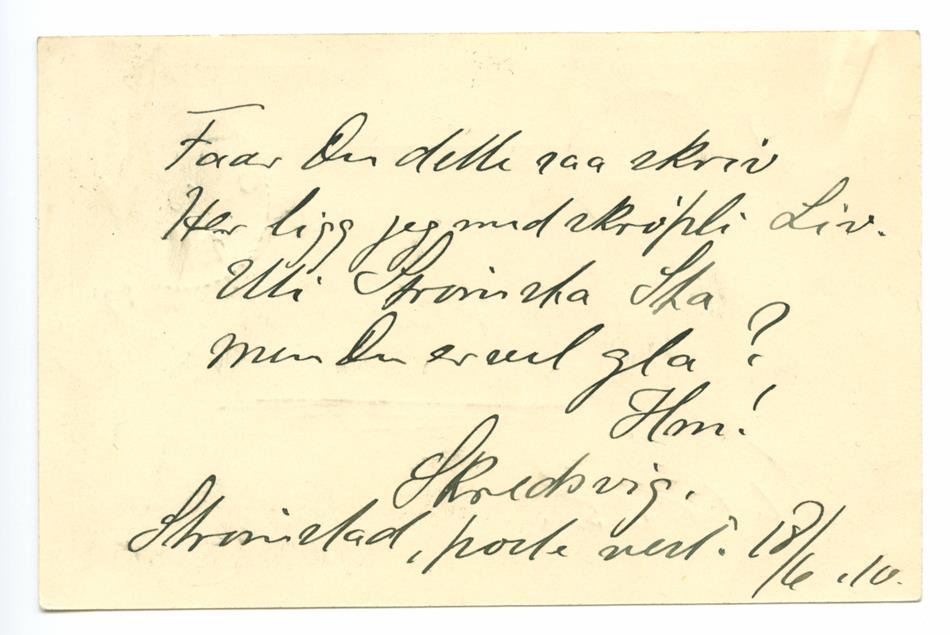 Faar Du dette saa skriv
Her ligg jeg med skrøpli Liv.
Uti Strømsta Sta
men Du er vel gla?
Hm!
Skredsvig.
Strømstad, poste rest. 18/6 .10.